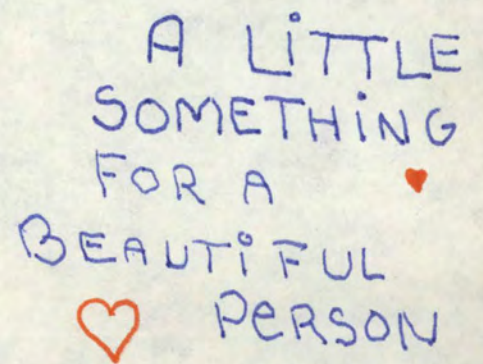 A LiTTLE
SOMETHiNG
FOR A
BEAUTiFUL
PeRSON